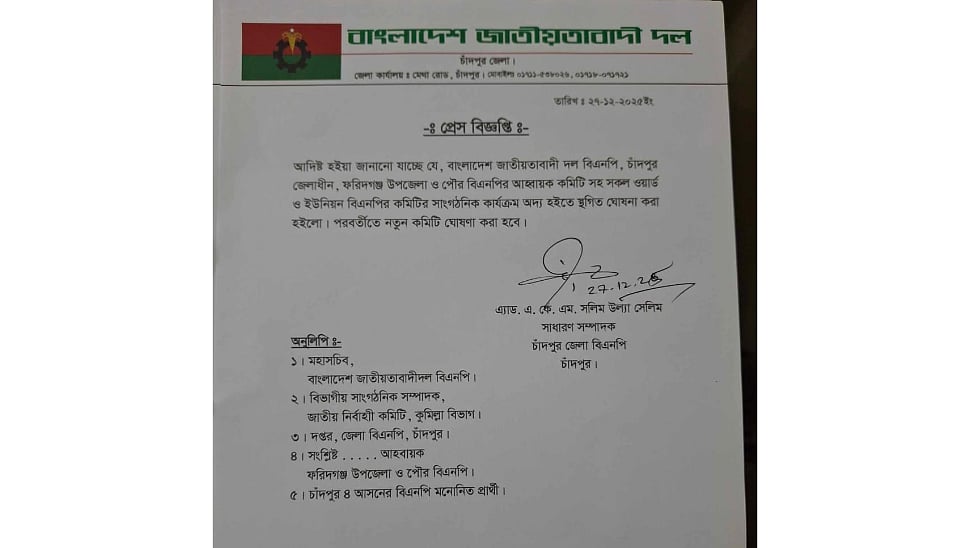 বাংলাদেশ জাতীয়তাবাদী দল
চাঁদপুর জেলা।
জেলা কার্যালয় ঃ মেথা রোড, চাঁদপুর। মোবাইলঃ ০১৭১১-৫৩৮০২৬, ০১৭১৮-০৭১৭২১
তারিখ ঃ ২৭-১২-২০২৫ইং
-ঃ প্রেস বিজ্ঞপ্তি ঃ-
আদিষ্ট হইয়া জানানো যাচ্ছে যে, বাংলাদেশ জাতীয়তাবাদী দল বিএনপি, চাঁদপুর
জেলাধীন, ফরিদগঞ্জ উপজেলা ও পৌর বিএনপির আহ্বায়ক কমিটি সহ সকল ওয়ার্ড
ও ইউনিয়ন বিএনপির কমিটির সাংগঠনিক কার্যক্রম অদ্য হইতে স্থগিত ঘোষনা করা
হইলো। পরবর্তীতে নতুন কমিটি ঘোষণা করা হবে।
27.12.25
এ্যাড. এ. কে. এম. সলিম উল্যা সেলিম
সাধারণ সম্পাদক
চাঁদপুর জেলা বিএনপি
চাঁদপুর।
অনুলিপি ঃ-
১। মহাসচিব,
বাংলাদেশ জাতীয়তাবাদীদল বিএনপি।
২। বিভাগীয় সাংগঠনিক সম্পাদক,
জাতীয় নির্বাহী কমিটি, কুমিল্লা বিভাগ।
৩। দপ্তর, জেলা বিএনপি, চাঁদপুর।
৪। সংশ্লিষ্ট ..... আহবায়ক
ফরিদগঞ্জ উপজেলা ও পৌর বিএনপি।
৫। চাঁদপুর ৪ আসনের বিএনপি মনোনিত প্রার্থী।